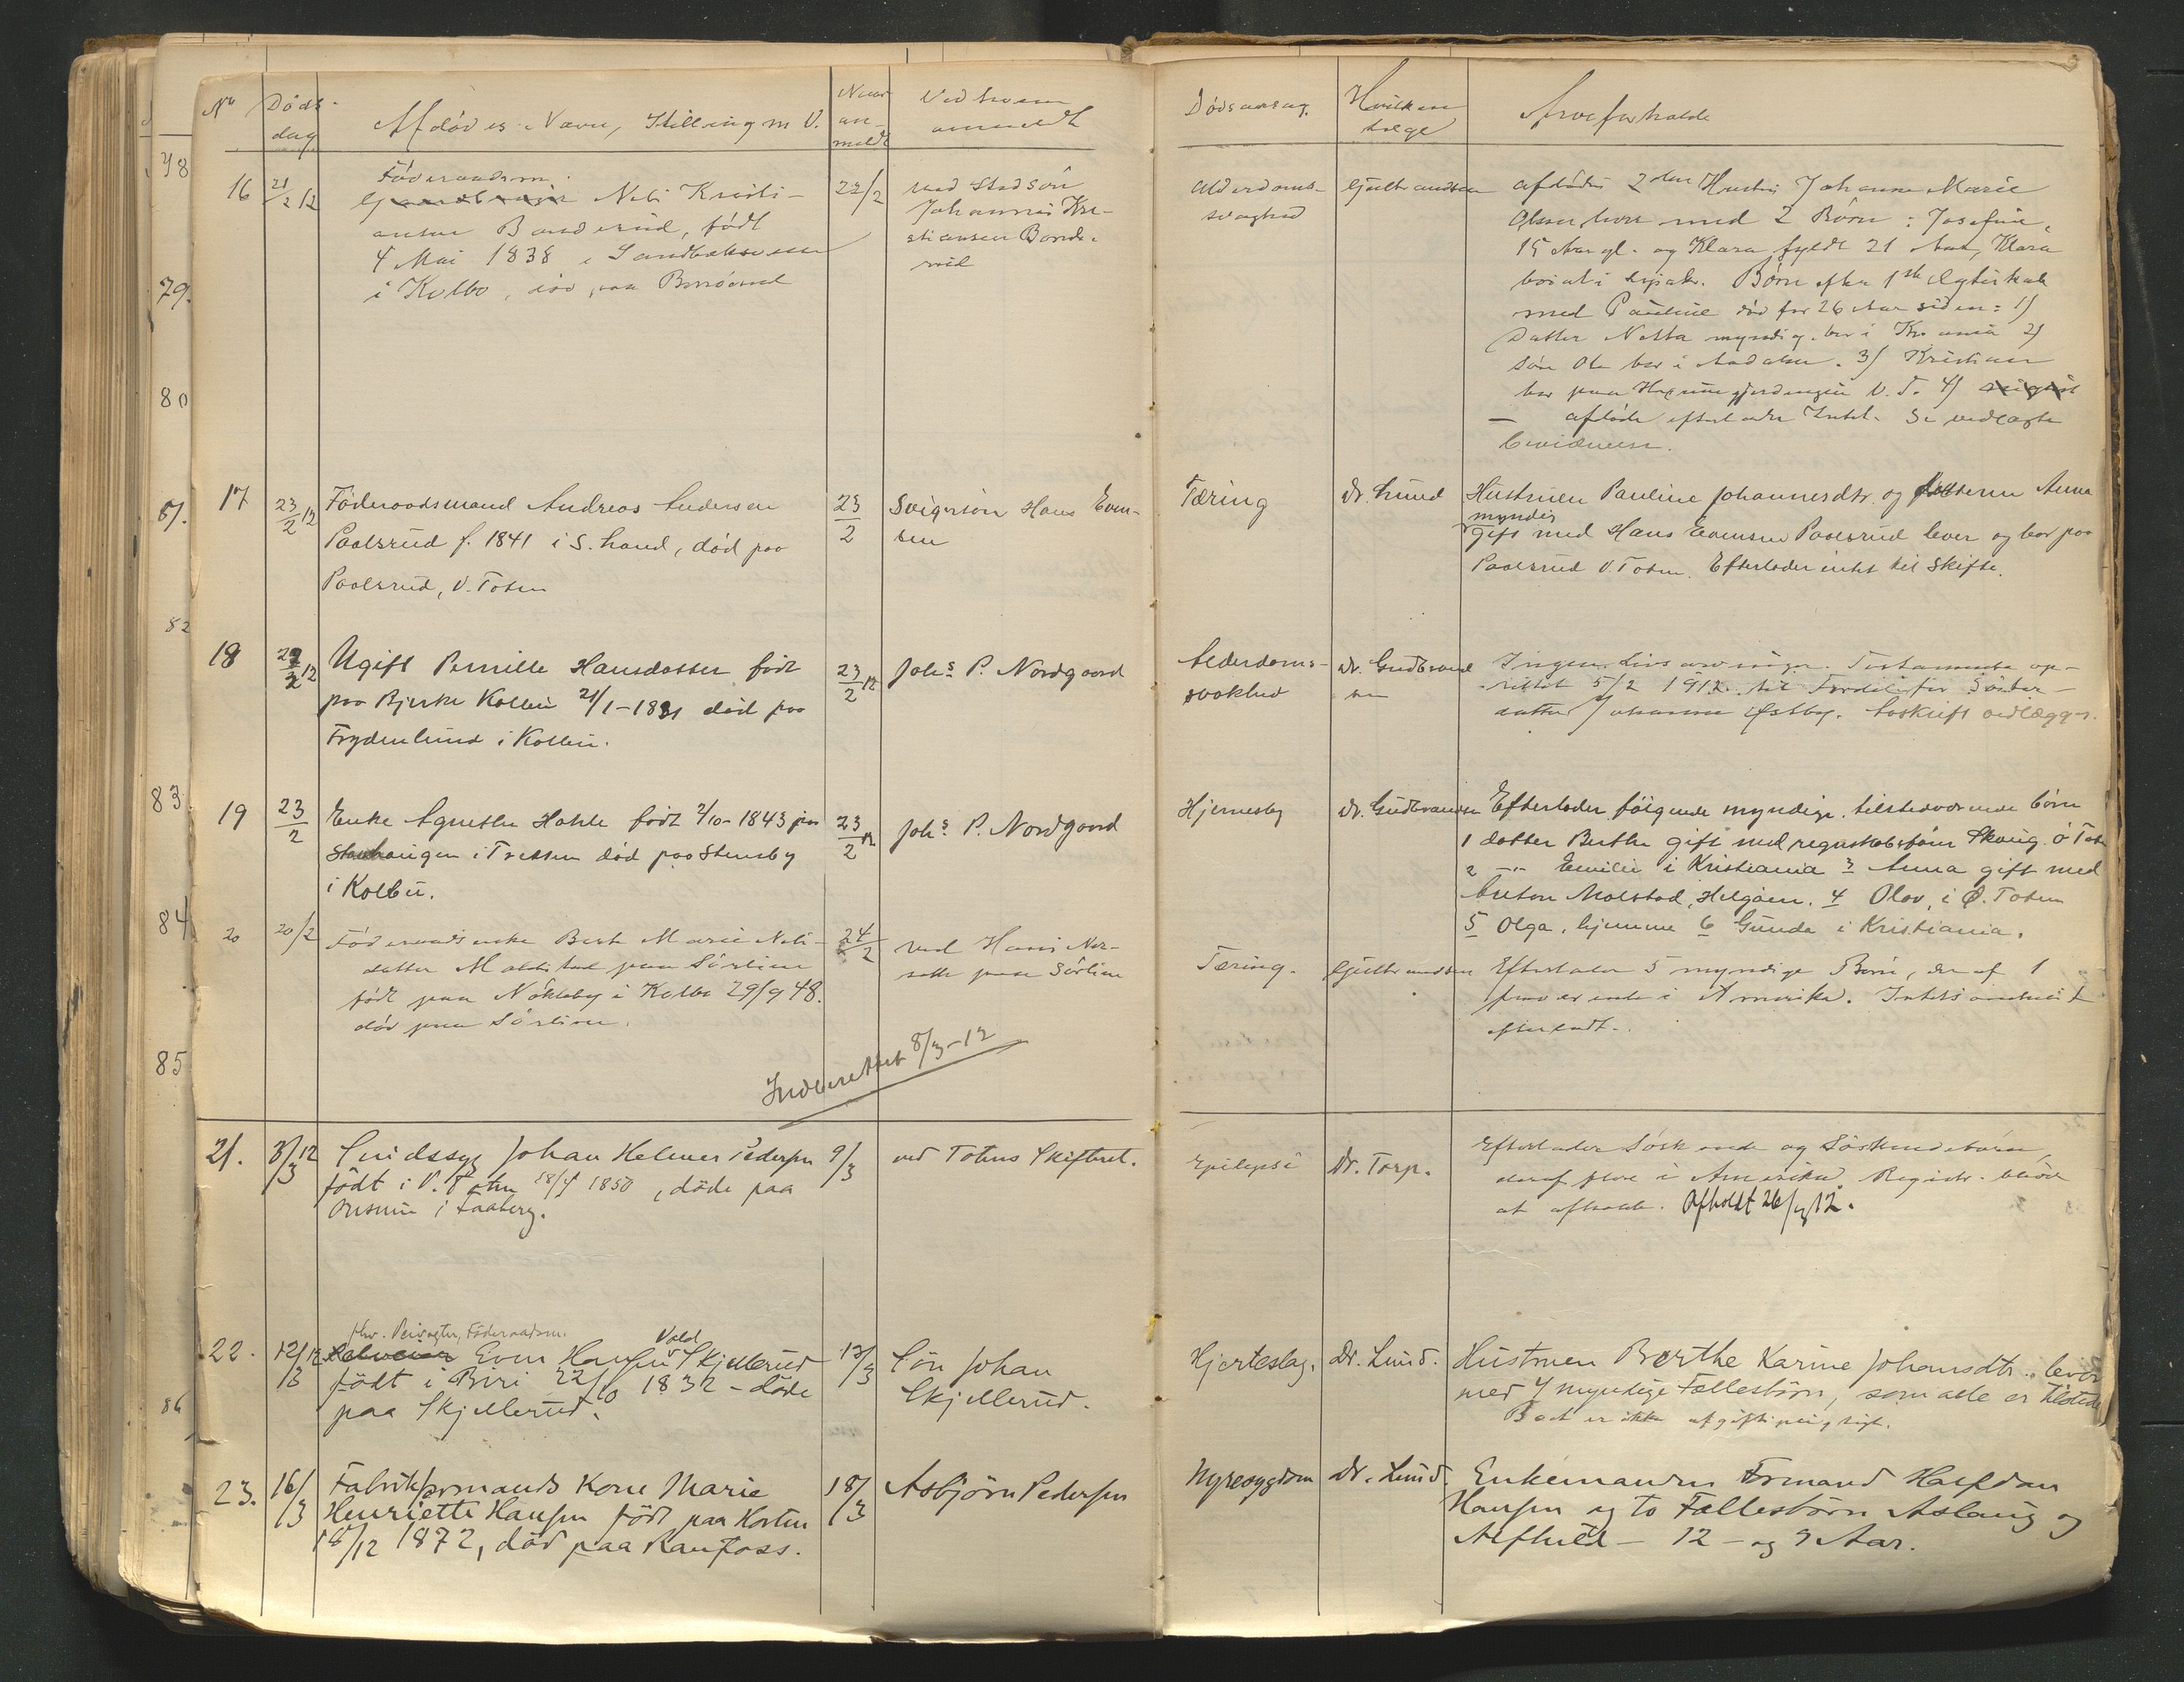 No Døds-
dag
Afdødes Navn, Stilling m V.
Naar
an-
meldt
Ved hvem
anmeldt
Dødsaarsag.
Hvilken
Læge
Arveforholde
78
79.
80
81.
82
83.
84
85
86
16 21/2 12
Føderaadsm.
Nels Kristi-
ansen Bonderud, født
4 Mai 1838 i
i Kolbo, død paa
22/2
ved Stedsøn
Johannes Kri-
stiansen Bonde-
rud
Alderdoms-
svaghed
Gulbrandsen
afdødes 2den Hustru Johanne Marie
Olsen lever med 2 Børn: Josefine,
15 Aar gl. og Klara fyldt 21 Aar, Klara
Børn efter 1ste Ægteskab
med Pauline død for 26 Aar siden: 1)
Datter Netta myndig, bor i Kr.ania 2)
Søn Ole bor i 3) Kristian
bor paa V. T. 4)
— afdøde efterlader Intet. Se vedlagte
17 23/2 12
Føderaadsmand Andreas Andersen
Paalsrud f. 1841 i S. Land, død paa
Paalsrud, V. Toten
23/2
Svigersøn Hans Even-
sen
Tæring
Dr. Lund
Hustruen Pauline Johannesdtr. og datteren Anna
myndig
gift med Hans Evensen Paalsrud lever og bor paa
Paalsrud V. Toten. Efterlader intet til Skifte.
18
Ugift Pernille Hansdatter født
paa Bjerke Kolbu 21/1-1831 død paa
Frydenlund i Kolbu.
23/2 12
Johs. P. Nordgaard
Alderdoms-
svakhed
Dr. Gudbrand
sen
Ingen Livsarvinger. Testamente op-
rettet 5/2 1912 til Fordel for Søster-
datter Johanne Østby. Avskrift vedlægges.
19 23/2
Enke Agnethe Hohle født 2/10-1843 paa
i Tretten død paa Stensby
i Kolbu.
23/2 12
Johs. P. Nordgaard
Hjernesby
Dr. Gudbrandsen
Efterlader følgende myndige tilstedeværende børn
1 datter Berthe gift med regnskabsfører Skaug Ø Toten
2 -"- Emilie i Kristiania 3 Anna gift med
Anton Molstad, Helgøen. 4 Olav, i Ø. Toten
5 Olga, hjemme 6 Gunda i Kristiania.
20 20/2
Føderaadsenke Berte Marie Nils-
datter paa Sørlien
født paa Nøkleby i Kolbu 29/9 48.
død paa Sørlien.
24/2
ved Hans
paa Sørlien
Tæring.
Gulbrandsen
Efterlader 5 myndige Børn, der af 1
fraværende i Amerika. Intet
efterladt.
Indberettet 8/3-12
21. 8/3 12
Sindssyg Johan Helmer Pedersen
født i V. Toten 18/4 1850, døde paa
i Faaberg.
9/3
ved Totens Skifteret.
Epilepsi
Dr. Torp.
Efterlader Søskende og Søskendebørn,
deraf flere i Amerika. Registr.
at afholde. Afholdt 26/4 12.
22. 12/3 12
Føderaadsm.
Even Hansen Skjellerud
Vold
født i Biri 22/10 1832 - døde
paa Skjellerud.
13/3
Søn Johan
Skjellerud.
Hjerteslag.
Dr. Lund.
Hustruen Berthe Karine Johansdtr. lever
med 7 myndige Fællesbørn, som alle er tilstede
Boet er ikke afgiftspligtigt.
23. 16/3
Fabrikformands Kone Marie
Henriette Hansen født paa Horten
18/12 1872, død paa Raufoss.
18/3
Asbjørn Pedersen
Nyresygdom
Dr. Lund.
Enkemanden Formand Halfdan
Hansen og to Fællesbørn Aslaug og
Alfhild - 12 - og 9 Aar.